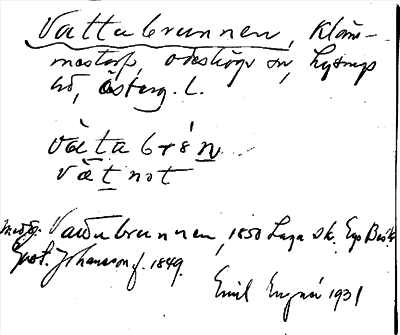 Vattubrunnen, Kläm-
mestorp, Ödeshögs sn, Lysings
hd, Österg. l.
vàtabrén
vàtnot
meddg. Vattubrunnen, 1850 Laga sk. Ego Beskr
Gust. Johansson f. 1849.
Emil 1931